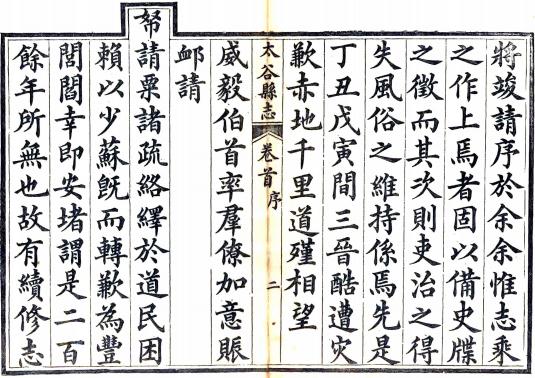 將竣請序於余余惟志乘
之作上焉者固以備史牒
之徵而其次則吏治之得
失風俗之維持係焉先是
丁丑戊寅間三晉酷遭災
歉赤地千里道殣相望
太谷縣志 卷首 序 二
威毅伯首率羣僚加意賑
卹請
帑請粟諸疏絡繹於道民困
賴以少蘇旣而轉歉為豐
閭閻幸即安堵謂是二百
餘年所無也故有續修志